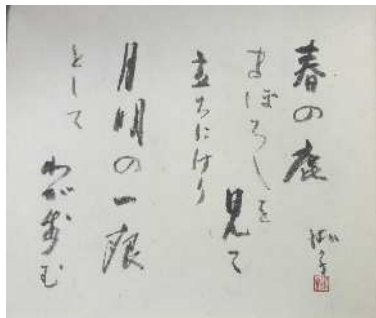 春の鹿
まぼろしを見て
立ちにけり
月明の一痕
として
わが歩む
湘子